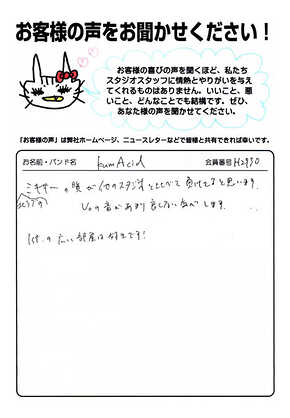 お客様の声をお聞かせください！
お客様の喜びの声を聞くほど、私たち
スタジオスタッフに情熱とやりがいを与え
てくれるものはありません。いいこと、悪
いこと、どんなことでも結構です。ぜひ、
あなた様の声を聞かせてください。
「お客様の声」は弊社ホームページ、ニュースレターなどで皆様と共有できれば幸いです。
お名前・バンド名 kumAcid 会員番号 H2950
ミキサーの 他のスタジオと比べて 思います。
Voの音があまり 気がします。
の広い部屋は好きです!